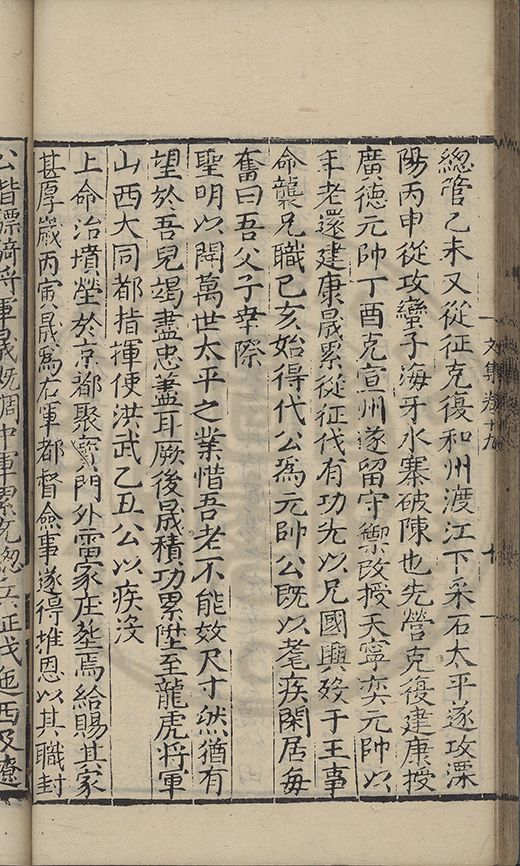 文集卷十九
十
總管乙未又從征克復和州渡江下采石太平遂攻溧
陽丙申從攻蠻子海牙水寨破陳也先營克復建康授
廣德元帥丁酉克宣州遂留守禦改授天寧奕元帥以
年老還建康晟累從征伐有功先以兄國興歿于王事
命襲兄職已亥始得代公為元帥公既以耄疾閑居每
奮曰吾父子幸際
聖明以開萬世太平之業惜吾老不能效尺寸然猶有
望於吾兒竭盡忠藎耳厥後晟積功累陞至龍虎將軍
山西大同都指揮使洪武乙丑公以疾没
上命治墳塋於京都聚寳門外雷家庄塟焉給賜其家
甚厚嵗丙寅晟為右軍都督僉事遂得推恩以其職封
公階驃騎將軍晟旣調中軍累充總兵征伐迤西及遼